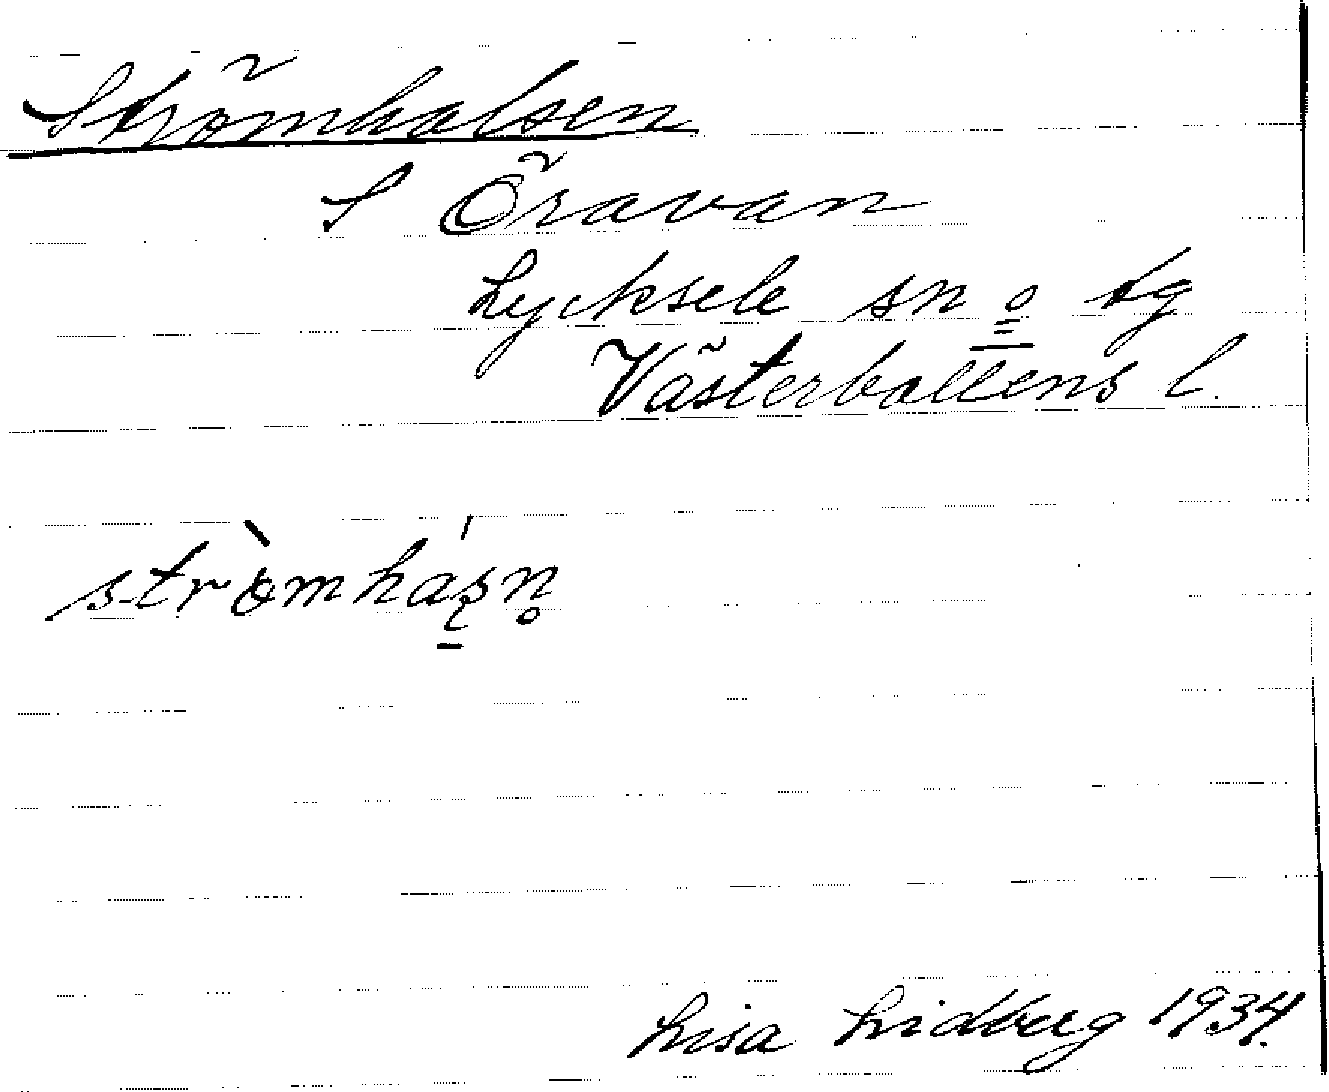 Strömhalsen
S Öravan
Lycksele sn o tg
Västerbottens l.
strömhasn
Lisa Lidberg 1934.